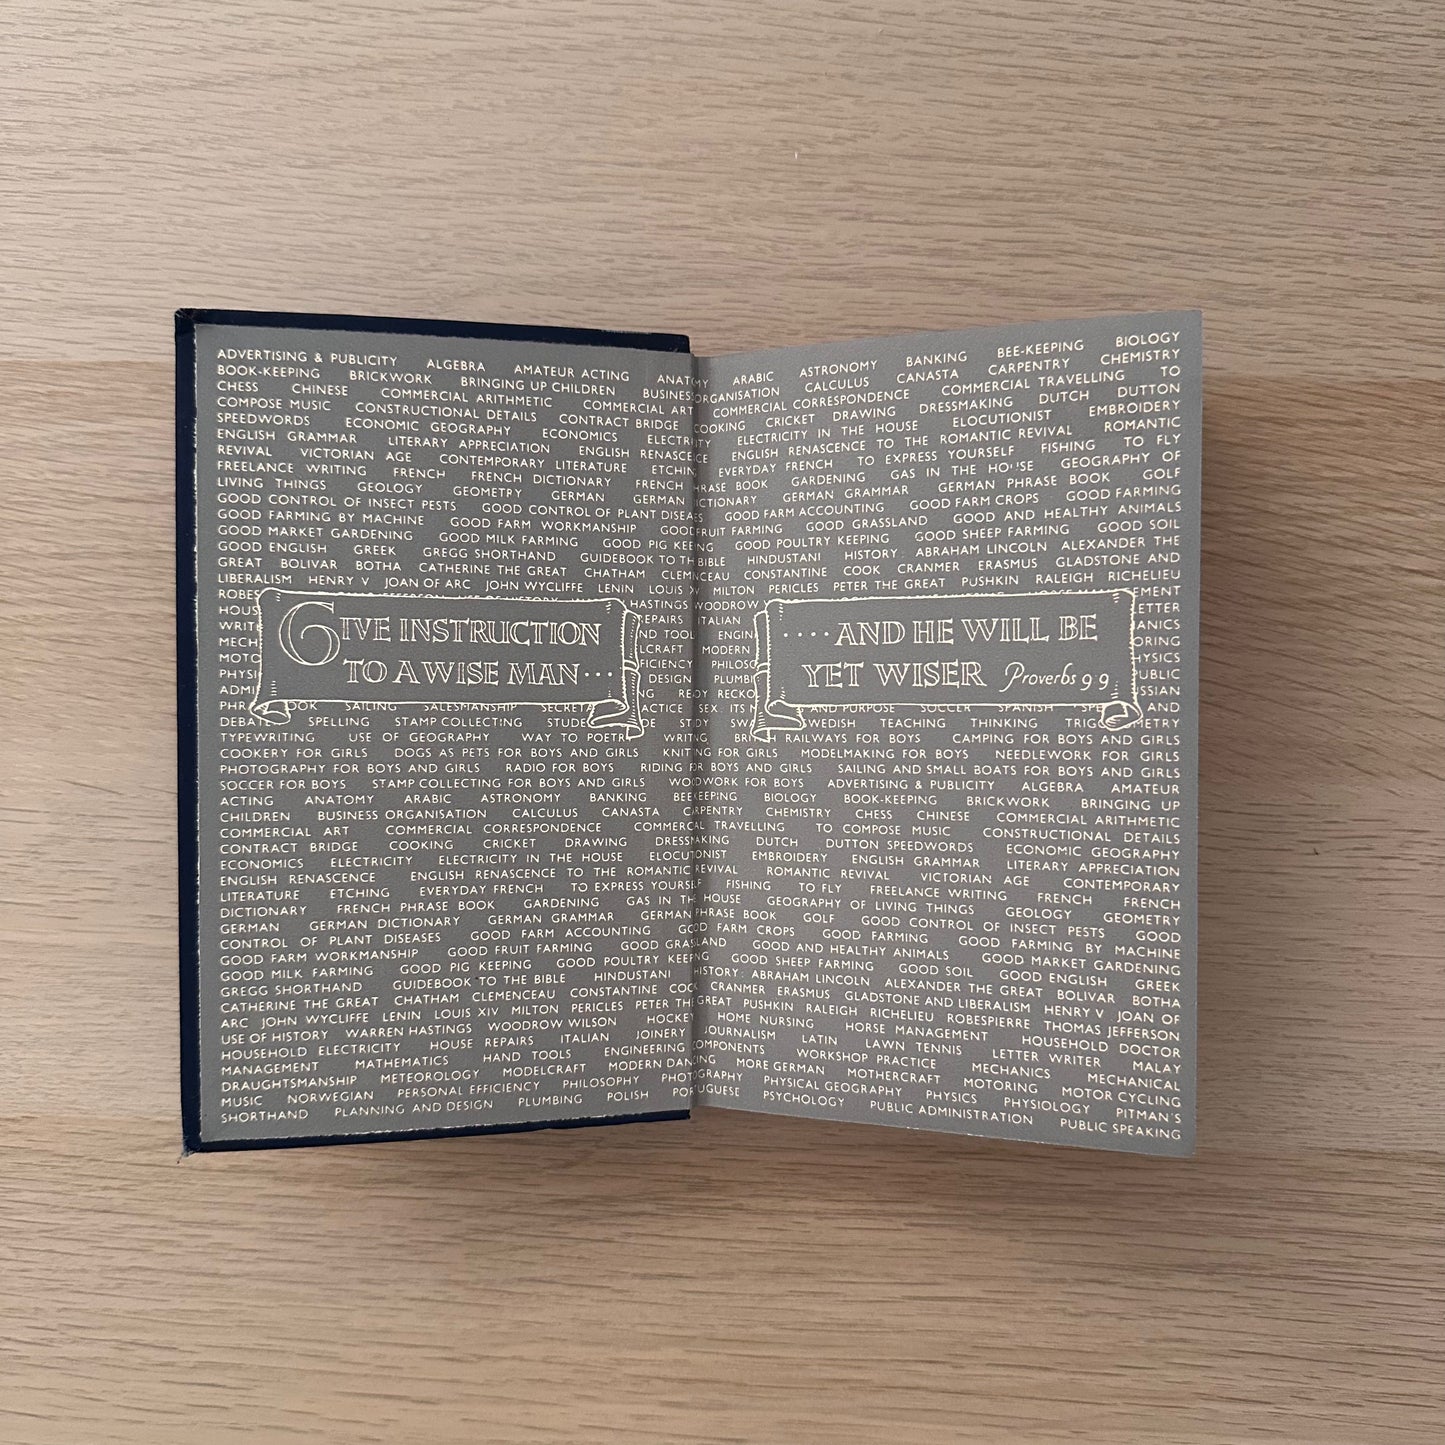 ADVERTISING & PUBLICITY ALGEBRA AMATEUR ACTING ANATOMY ARABIC ASTRONOMY BANKING BEE-KEEPING BIOLOGY
BOOK-KEEPING BRICKWORK BRINGING UP CHILDREN BUSINESS ORGANISATION CALCULUS CANASTA CARPENTRY CHEMISTRY
CHESS CHINESE COMMERCIAL ARITHMETIC COMMERCIAL ART COMMERCIAL CORRESPONDENCE COMMERCIAL TRAVELLING TO
COMPOSE MUSIC CONSTRUCTIONAL DETAILS CONTRACT BRIDGE COOKING CRICKET DRAWING DRESSMAKING DUTCH DUTTON
SPEEDWORDS ECONOMIC GEOGRAPHY ECONOMICS ELECTRICITY ELECTRICITY IN THE HOUSE ELOCUTIONIST EMBROIDERY
ENGLISH GRAMMAR LITERARY APPRECIATION ENGLISH RENASCENCE ENGLISH RENASCENCE TO THE ROMANTIC REVIVAL ROMANTIC
REVIVAL VICTORIAN AGE CONTEMPORARY LITERATURE ETCHING EVERYDAY FRENCH TO EXPRESS YOURSELF FISHING TO FLY
FREELANCE WRITING FRENCH FRENCH DICTIONARY FRENCH PHRASE BOOK GARDENING GAS IN THE HOUSE GEOGRAPHY OF
LIVING THINGS GEOLOGY GEOMETRY GERMAN GERMAN DICTIONARY GERMAN GRAMMAR GERMAN PHRASE BOOK GOLF
GOOD CONTROL OF INSECT PESTS GOOD CONTROL OF PLANT DISEASES GOOD FARM ACCOUNTING GOOD FARM CROPS GOOD FARMING
GOOD FARMING BY MACHINE GOOD FARM WORKMANSHIP GOOD FRUIT FARMING GOOD GRASSLAND GOOD AND HEALTHY ANIMALS
GOOD MARKET GARDENING GOOD MILK FARMING GOOD PIG KEEPING GOOD POULTRY KEEPING GOOD SHEEP FARMING GOOD SOIL
GOOD ENGLISH GREEK GREGG SHORTHAND GUIDEBOOK TO THE BIBLE HINDUSTANI HISTORY: ABRAHAM LINCOLN ALEXANDER THE
GREAT BOLIVAR BOTHA CATHERINE THE GREAT CHATHAM CLEMENCEAU CONSTANTINE COOK CRANMER ERASMUS GLADSTONE AND
LIBERALISM HENRY V JOAN OF ARC JOHN WYCLIFFE LENIN LOUIS XIV MILTON PERICLES PETER THE GREAT PUSHKIN RALEIGH RICHELIEU
HASTINGS WOODROW
REPAIRS ITALIAN
GIVE INSTRUCTION
TO A WISE MAN...
.... AND HE WILL BE
YET WISER Proverbs 9 9
PHRASE BOOK SAILING SALESMANSHIP PRACTICE SEX: ITS AND PURPOSE SOCCER SPANISH AND
DEBATE SPELLING STAMP COLLECTING STUDY SWEDISH TEACHING THINKING TRIGONOMETRY
TYPEWRITING USE OF GEOGRAPHY WAY TO POETRY WRITING BRITISH RAILWAYS FOR BOYS CAMPING FOR BOYS AND GIRLS
COOKERY FOR GIRLS DOGS AS PETS FOR BOYS AND GIRLS KNITTING FOR GIRLS MODELMAKING FOR BOYS NEEDLEWORK FOR GIRLS
PHOTOGRAPHY FOR BOYS AND GIRLS RADIO FOR BOYS RIDING FOR BOYS AND GIRLS SAILING AND SMALL BOATS FOR BOYS AND GIRLS
SOCCER FOR BOYS STAMP COLLECTING FOR BOYS AND GIRLS WOODWORK FOR BOYS ADVERTISING & PUBLICITY ALGEBRA AMATEUR
ACTING ANATOMY ARABIC ASTRONOMY BANKING BEEKEEPING BIOLOGY BOOK-KEEPING BRICKWORK BRINGING UP
CHILDREN BUSINESS ORGANISATION CALCULUS CANASTA CARPENTRY CHEMISTRY CHESS CHINESE COMMERCIAL ARITHMETIC
COMMERCIAL ART COMMERCIAL CORRESPONDENCE COMMERCIAL TRAVELLING TO COMPOSE MUSIC CONSTRUCTIONAL DETAILS
CONTRACT BRIDGE COOKING CRICKET DRAWING DRESSMAKING DUTCH DUTTON SPEEDWORDS ECONOMIC GEOGRAPHY
ECONOMICS ELECTRICITY ELECTRICITY IN THE HOUSE ELOCUTIONIST EMBROIDERY ENGLISH GRAMMAR LITERARY APPRECIATION
ENGLISH RENASCENCE ENGLISH RENASCENCE TO THE ROMANTIC REVIVAL ROMANTIC REVIVAL VICTORIAN AGE CONTEMPORARY
LITERATURE ETCHING EVERYDAY FRENCH TO EXPRESS YOURSELF FISHING TO FLY FREELANCE WRITING FRENCH FRENCH
DICTIONARY FRENCH PHRASE BOOK GARDENING GAS IN THE HOUSE GEOGRAPHY OF LIVING THINGS GEOLOGY GEOMETRY
GERMAN GERMAN DICTIONARY GERMAN GRAMMAR GERMAN PHRASE BOOK GOLF GOOD CONTROL OF INSECT PESTS GOOD
CONTROL OF PLANT DISEASES GOOD FARM ACCOUNTING GOOD FARM CROPS GOOD FARMING GOOD FARMING BY MACHINE
GOOD FARM WORKMANSHIP GOOD FRUIT FARMING GOOD GRASSLAND GOOD AND HEALTHY ANIMALS GOOD MARKET GARDENING
GOOD MILK FARMING GOOD PIG KEEPING GOOD POULTRY KEEPING GOOD SHEEP FARMING GOOD SOIL GOOD ENGLISH GREEK
GREGG SHORTHAND GUIDEBOOK TO THE BIBLE HINDUSTANI HISTORY: ABRAHAM LINCOLN ALEXANDER THE GREAT BOLIVAR BOTHA
CATHERINE THE GREAT CHATHAM CLEMENCEAU CONSTANTINE COOK CRANMER ERASMUS GLADSTONE AND LIBERALISM HENRY V JOAN OF
ARC JOHN WYCLIFFE LENIN LOUIS XIV MILTON PERICLES PETER THE GREAT PUSHKIN RALEIGH RICHELIEU ROBESPIERRE THOMAS JEFFERSON
USE OF HISTORY WARREN HASTINGS WOODROW WILSON HOCKEY HOME NURSING HORSE MANAGEMENT HOUSEHOLD DOCTOR
HOUSEHOLD ELECTRICITY HOUSE REPAIRS ITALIAN JOINERY JOURNALISM LATIN LAWN TENNIS LETTER WRITER MALAY
MANAGEMENT MATHEMATICS HAND TOOLS ENGINEERING COMPONENTS WORKSHOP PRACTICE MECHANICS MECHANICAL
DRAUGHTSMANSHIP METEOROLOGY MODELCRAFT MODERN DANCING MORE GERMAN MOTHERCRAFT MOTORING MOTOR CYCLING
MUSIC NORWEGIAN PERSONAL EFFICIENCY PHILOSOPHY PHOTOGRAPHY PHYSICAL GEOGRAPHY PHYSICS PHYSIOLOGY PITMAN'S
SHORTHAND PLANNING AND DESIGN PLUMBING POLISH PORTUGUESE PSYCHOLOGY PUBLIC ADMINISTRATION PUBLIC SPEAKING